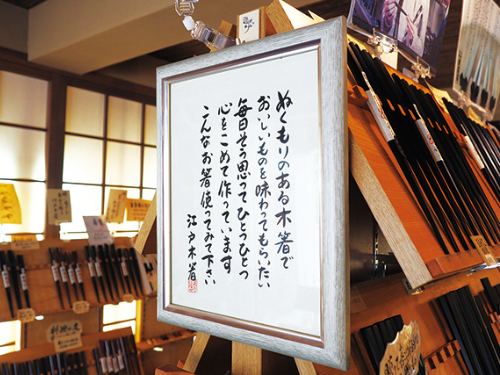 ぬくもりのある木箸で
おいしいものを味わってもらいたい
毎日そう思ってひとつひとつ
心をこめて作っています
こんなお箸使ってみて下さい
江戸木箸